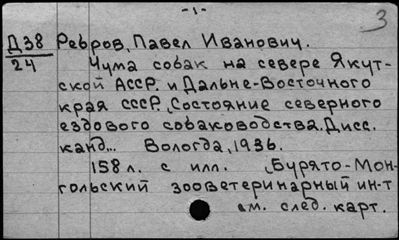 -1-
3
Д38 Ребров, Павел Иванович.
24 Чума собак на севере Якут-
ской АССР. и Дальне-Восточного
края СССР. Состояние северного
ездового собаководства. Дисс.
канд... Вологда, 1936.
158 л. с илл. Бурято-Мон-
гольский зооветеринарный ин-т
см. след. карт.